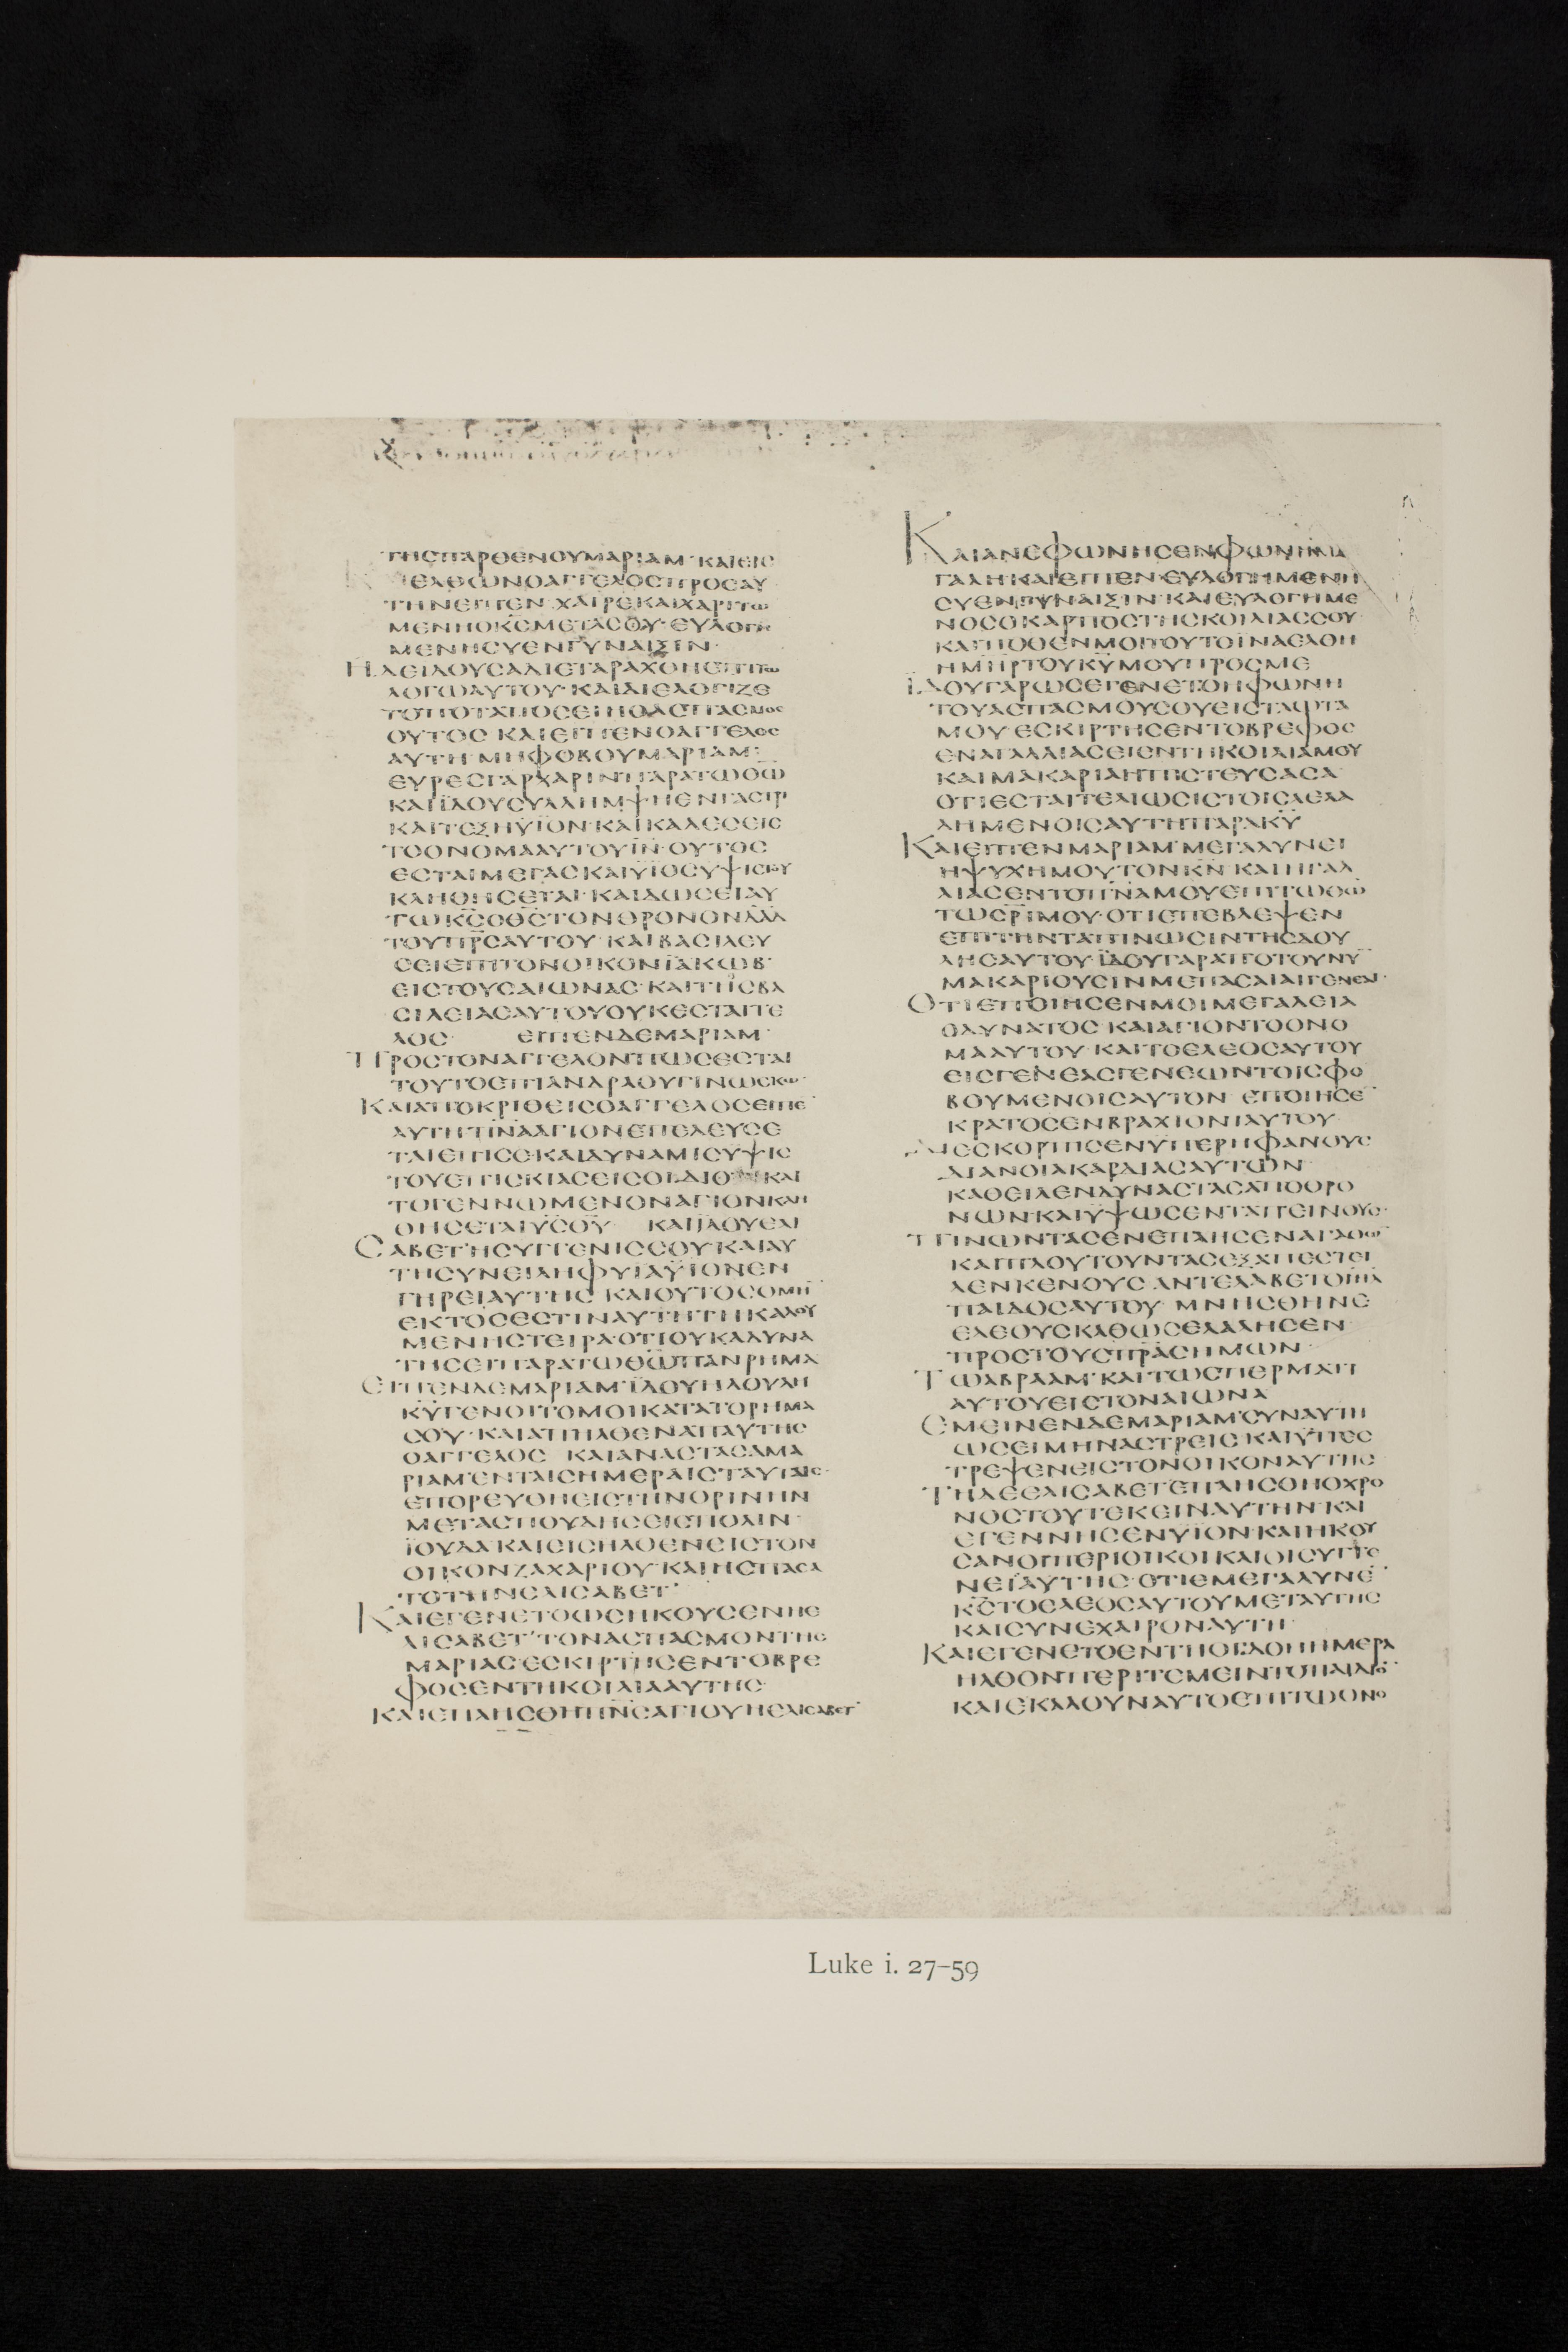 ΤΗΣΠΑΡΘΕΝΟΥΜΑΡΙΑΜ· ΚΑΙΕΙϹ
ΕΛΘΩΝΟΑΓΓΕΛΟϹΠΡΟϹΑΥ
ΤΗΝΕΙΠΕΝ· ΧΑΙΡΕΚΑΙΧΑΡΙΤΩ
ΜΕΝΗΟΚ̅Ϲ̅ΜΕΤΑϹΟΥ· ΕΥΛΟΓΗ
ΜΕΝΗϹΥΕΝΓΥΝΑΙΞΙΝ·
ΗΔΕΙΔΟΥϹΑΔΙΕΤΑΡΑΧΘΗΕΠΙΤΩ
ΛΟΓΩΑΥΤΟΥ· ΚΑΙΔΙΕΛΟΓΙΖΕ
ΤΟΠΟΤΑΠΟϹΕΙΗΟΑϹΠΑϹΜΟϹ
ΟΥΤΟϹ ΚΑΙΕΙΠΕΝΟΑΓΓΕΛΟϹ
ΑΥΤΗ· ΜΗΦΟΒΟΥΜΑΡΙΑΜ·
ΕΥΡΕϹΓΑΡΧΑΡΙΝΠΑΡΑΤΩΘ̅Ω̅
ΚΑΙΪΔΟΥϹΥΛΛΗΜΨΗΕΝΓΑϹΤΡΙ
ΚΑΙΤΕΞΗΫΙΟΝ· ΚΑΙΚΑΛΕϹΕΙϹ
ΤΟΟΝΟΜΑΑΥΤΟΥΙ̅Ν̅· ΟΥΤΟϹ
ΕϹΤΑΙΜΕΓΑϹΚΑΙΫΙΟϹΥΨΙϹΤΟΥ
ΚΛΗΘΗϹΕΤΑΙ· ΚΑΙΔΩϹΕΙΑΥ
ΤΩΚ̅Ϲ̅ΟΘ̅Ϲ̅ΤΟΝΘΡΟΝΟΝΔ̅Α̅Δ̅
ΤΟΥΠ̅Ρ̅Ϲ̅ΑΥΤΟΥ· ΚΑΙΒΑϹΙΛΕΥ
ϹΕΙΕΠΙΤΟΝΟΙΚΟΝΪΑΚΩΒ·
ΕΙϹΤΟΥϹΑΙΩΝΑϹ· ΚΑΙΤΗϹΒΑ
ϹΙΛΕΙΑϹΑΥΤΟΥΟΥΚΕϹΤΑΙΤΕ
ΛΟϹ ΕΙΠΕΝΔΕΜΑΡΙΑΜ·
ΠΡΟϹΤΟΝΑΓΓΕΛΟΝΠΩϹΕϹΤΑΙ
ΤΟΥΤΟΕΠΙΑΝΔΡΑΟΥΓΙΝΩϹΚΩ·
ΚΑΙΑΠΟΚΡΙΘΕΙϹΟΑΓΓΕΛΟϹΕΙΠΕ̅
ΑΥΤΗΠ̅Ν̅Α̅ΑΓΙΟΝΕΠΕΛΕΥϹΕ
ΤΑΙΕΠΙϹΕΚΑΙΔΥΝΑΜΙϹΥΨΙϹ
ΤΟΥΕΠΙϹΚΙΑϹΕΙϹΟΙ·ΔΙΟ ΚΑΙ
ΤΟΓΕΝΝΩΜΕΝΟΝΑΓΙΟΝΚΛΗ
ΘΗϹΕΤΑΙΥ̅Ϲ̅Θ̅Υ̅ ΚΑΙΪΔΟΥΕΛΙ
ϹΑΒΕΤ'ΗϹΥΓΓΕΝΙϹϹΟΥΚΑΙΑΥ
ΤΗϹΥΝΕΙΛΗΦΥΙΑΫΙΟΝΕΝ
ΓΗΡΕΙΑΥΤΗϹ· ΚΑΙΟΥΤΟϹΟΜΗ̅
ΕΚΤΟϹΕϹΤΙΝΑΥΤΗΤΗΚΑΛΟΥ
ΜΕΝΗϹΤΕΙΡΑ·ΟΤΙΟΥΚΑΔΥΝΑ
ΤΗϹΕΙΠΑΡΑΤΩΘ̅Ω̅ΠΑΝΡΗΜΑ
ΕΙΠΕΝΔΕΜΑΡΙΑΜ· ΪΔΟΥΗΔΟΥΛΗ
Κ̅Υ̅ΓΕΝΟΙΤΟΜΟΙΚΑΤΑΤΟΡΗΜΑ
ϹΟΥ· ΚΑΙΑΠΗΛΘΕΝΑΠΑΥΤΗϹ
ΟΑΓΓΕΛΟϹ ΚΑΙΑΝΑϹΤΑϹΑΜΑ
ΡΙΑΜ'ΕΝΤΑΙϹΗΜΕΡΑΙϹΤΑΥΤΑΙϹ·
ΕΠΟΡΕΥΘΗΕΙϹΤΗΝΟΡΙΝΗΝ
ΜΕΤΑϹΠΟΥΔΗϹΕΙϹΠΟΛΙΝ·
ΪΟΥΔΑ ΚΑΙΕΙϹΗΛΘΕΝΕΙϹΤΟΝ
ΟΙΚΟΝΖΑΧΑΡΙΟΥ· ΚΑΙΗϹΠΑϹΑ
ΤΟΤΗΝΕΛΙϹΑΒΕΤ'
ΚΑΙΕΓΕΝΕΤΟΩϹΗΚΟΥϹΕΝΗΕ
ΛΙϹΑΒΕΤ'ΤΟΝΑϹΠΑϹΜΟΝΤΗϹ
ΜΑΡΙΑϹ·ΕϹΚΙΡΤΗϹΕΝΤΟΒΡΕ
ΦΟϹΕΝΤΗΚΟΙΛΙΑΑΥΤΗϹ·
ΚΑΙΕΠΛΗϹΘΗΠ̅Ν̅Ϲ̅ΑΓΙΟΥΗΕΛΙϹΑΒΕΤ'
ΚΑΙΑΝΕΦΩΝΗϹΕΝΦΩΝΗΜΕ
ΓΑΛΗ·ΚΑΙΕΙΠΕΝ·ΕΥΛΟΓΗΜΕΝΗ
ϹΥΕΝΓΥΝΑΙΞΙΝ· ΚΑΙΕΥΛΟΓΗΜΕ
ΝΟϹΟΚΑΡΠΟϹΤΗϹΚΟΙΛΙΑϹϹΟΥ·
ΚΑΙΠΟΘΕΝΜΟΙΤΟΥΤΟΪΝΑΕΛΘΗ
ΗΜ̅Η̅Ρ̅ΤΟΥΚ̅Υ̅ΜΟΥΠΡΟϹΜΕ
ΪΔΟΥΓΑΡΩϹΕΓΕΝΕΤΟΗΦΩΝΗ
ΤΟΥΑϹΠΑϹΜΟΥϹΟΥΕΙϹΤΑΩΤΑ
ΜΟΥ·ΕϹΚΙΡΤΗϹΕΝΤΟΒΡΕΦΟϹ
ΕΝΑΓΑΛΛΙΑϹΕΙΕΝΤΗΚΟΙΛΙΑΜΟΥ
ΚΑΙΜΑΚΑΡΙΑΗΠΙϹΤΕΥϹΑϹΑ·
ΟΤΙΕϹΤΑΙΤΕΛΙΩϹΙϹΤΟΙϹΛΕΛΑ
ΛΗΜΕΝΟΙϹΑΥΤΗΠΑΡΑΚ̅Υ̅
ΚΑΙΕΙΠΕΝΜΑΡΙΑΜ·ΜΕΓΑΛΥΝΕΙ
ΗΨΥΧΗΜΟΥΤΟΝΚ̅Ν̅· ΚΑΙΗΓΑΛ
ΛΙΑϹΕΝΤΟΠ̅Ν̅Α̅ΜΟΥΕΠΙΤΩΘ̅Ω̅
ΤΩϹ̅Ρ̅Ι̅ΜΟΥ·ΟΤΙΕΠΕΒΛΕΨΕΝ
ΕΠΙΤΗΝΤΑΠΙΝΩϹΙΝΤΗϹΔΟΥ
ΛΗϹΑΥΤΟΥ· ΪΔΟΥΓΑΡΑΠΟΤΟΥΝΥ̅
ΜΑΚΑΡΙΟΥϹΙΝΜΕΠΑϹΑΙΑΙΓΕΝΕΑΙ·
ΟΤΙΕΠΟΙΗϹΕΝΜΟΙΜΕΓΑΛΕΙΑ
ΟΔΥΝΑΤΟϹ· ΚΑΙΑΓΙΟΝΤΟΟΝΟ
ΜΑΑΥΤΟΥ· ΚΑΙΤΟΕΛΕΟϹΑΥΤΟΥ
ΕΙϹΓΕΝΕΑϹΓΕΝΕΩΝΤΟΙϹΦΟ
ΒΟΥΜΕΝΟΙϹΑΥΤΟΝ· ΕΠΟΙΗϹΕ̅
ΚΡΑΤΟϹΕΝΒΡΑΧΙΟΝΙΑΥΤΟΥ·
ΔΙΕϹΚΟΡΠΙϹΕΝΥΠΕΡΗΦΑΝΟΥϹ
ΔΙΑΝΟΙΑΚΑΡΔΙΑϹΑΥΤΩΝ·
ΚΑΘΕΙΛΕΝΔΥΝΑϹΤΑϹΑΠΟΘΡΟ
ΝΩΝ·ΚΑΙΥΨΩϹΕΝΤΑΠΕΙΝΟΥϹ·
ΠΙΝΩΝΤΑϹΕΝΕΠΛΗϹΕΝΑΓΑΘΩ̅
ΚΑΙΠΛΟΥΤΟΥΝΤΑϹΕΞΑΠΕϹΤΕΙ
ΛΕΝΚΕΝΟΥϹ· ΑΝΤΕΛΑΒΕΤΟΙ̅Η̅Λ̅
ΠΑΙΔΟϹΑΥΤΟΥ· ΜΝΗϹΘΗΝΕ
ΕΛΕΟΥϹΚΑΘΩϹΕΛΑΛΗϹΕΝ
ΠΡΟϹΤΟΥϹΠ̅Ρ̅Α̅Ϲ̅ΗΜΩΝ·
ΤΩΑΒΡΑΑΜ·ΚΑΙΤΩϹΠΕΡΜΑΤΙ
ΑΥΤΟΥΕΙϹΤΟΝΑΙΩΝΑ
ΕΜΕΙΝΕΝΔΕΜΑΡΙΑΜ'ϹΥΝΑΥΤΗ
ΩϹΕΙΜΗΝΑϹΤΡΕΙϹ· ΚΑΙΫΠΕϹ
ΤΡΕΨΕΝΕΙϹΤΟΝΟΙΚΟΝΑΥΤΗϹ
ΤΗΔΕΕΛΙϹΑΒΕΤ'ΕΠΛΗϹΘΗΟΧΡΟ
ΝΟϹΤΟΥΤΕΚΕΙΝΑΥΤΗΝ·ΚΑΙ
ΕΓΕΝΝΗϹΕΝΥΪΟΝ·ΚΑΙΗΚΟΥ
ϹΑΝΟΙΠΕΡΙΟΙΚΟΙΚΑΙΟΙϹΥΓΓΕ
ΝΕΙϹΑΥΤΗϹ·ΟΤΙΕΜΕΓΑΛΥΝΕ̅
Κ̅Ϲ̅ΤΟΕΛΕΟϹΑΥΤΟΥΜΕΤΑΥΤΗϹ
ΚΑΙϹΥΝΕΧΑΙΡΟΝΑΥΤΗ·
ΚΑΙΕΓΕΝΕΤΟΕΝΤΗΟΓΔΟΗΗΜΕΡΑ
ΗΛΘΟΝΠΕΡΙΤΕΜΕΙΝΤΟΠΑΙΔΙΟ̅
ΚΑΙΕΚΑΛΟΥΝΑΥΤΟΕΠΙΤΩΟΝΟ
Luke i. 27–59